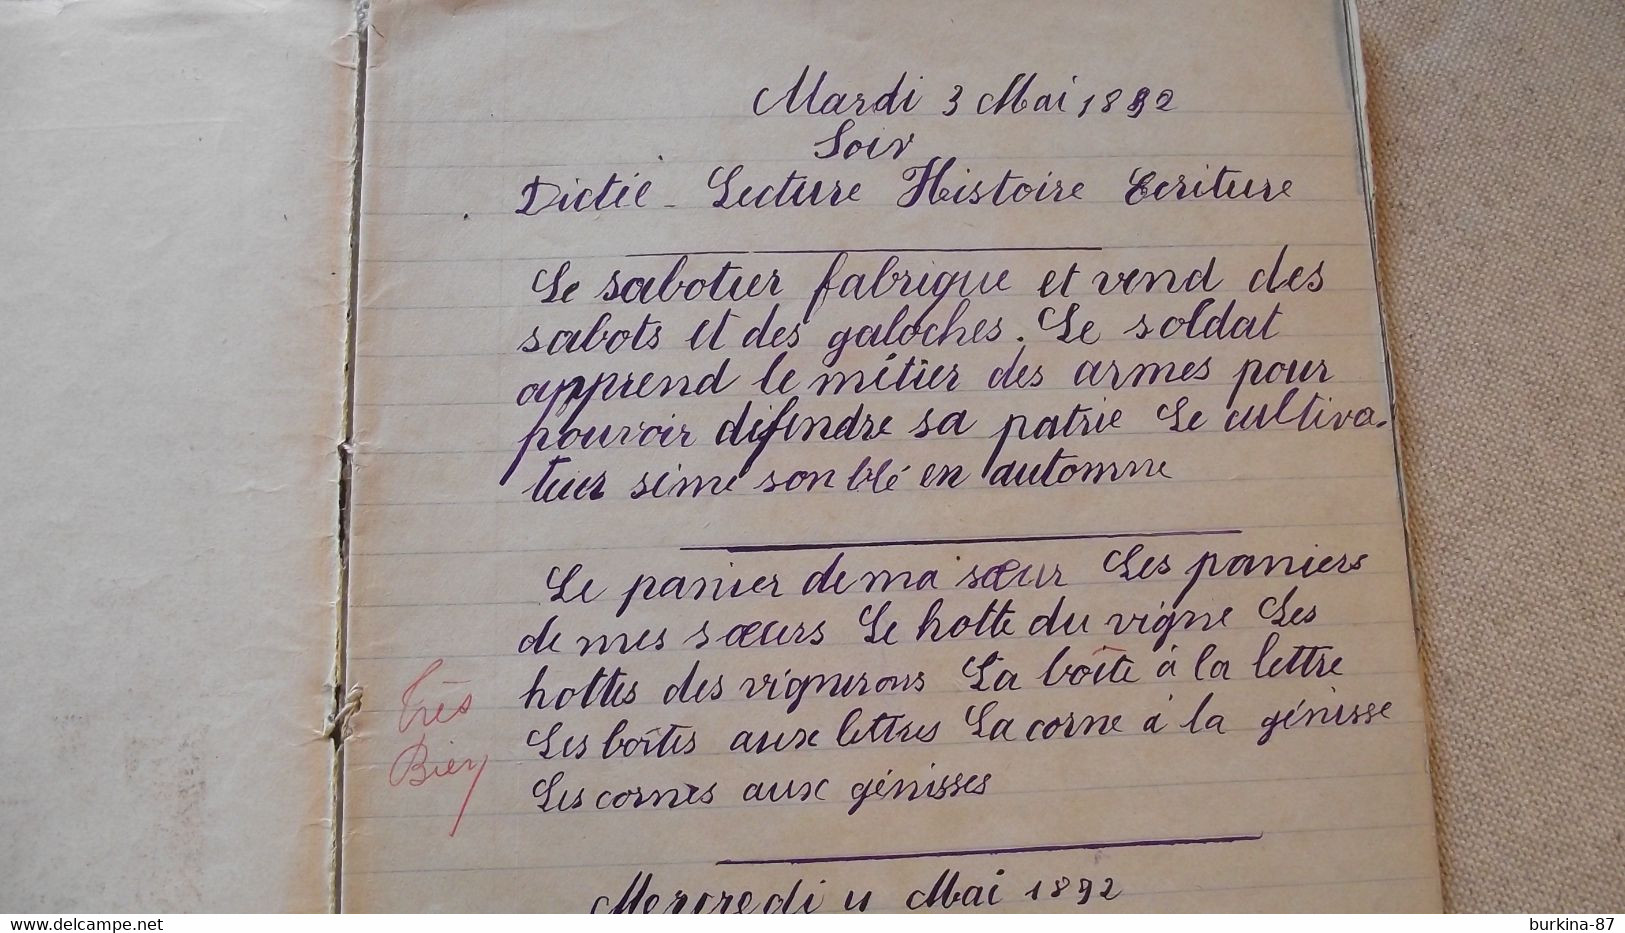 Mardi 3 Mai 1892
Soir
Dictée - Lecture Histoire Ecriture
Le sabotier fabrique et vend des
sabots et des galoches. Le soldat
apprend le métier des armes pour
pouvoir défendre sa patrie Le cultiva-
teur sème son blé en automne
Le panier de ma sœur Les paniers
de mes sœurs Le hotte du vigne Les
hottes des vignerons La boîte à la lettre
Les boîtes aux lettres La corne à la génisse
Les cornes aux génisses
Très
Bien
Mercredi 4 Mai 1892
burkina-87